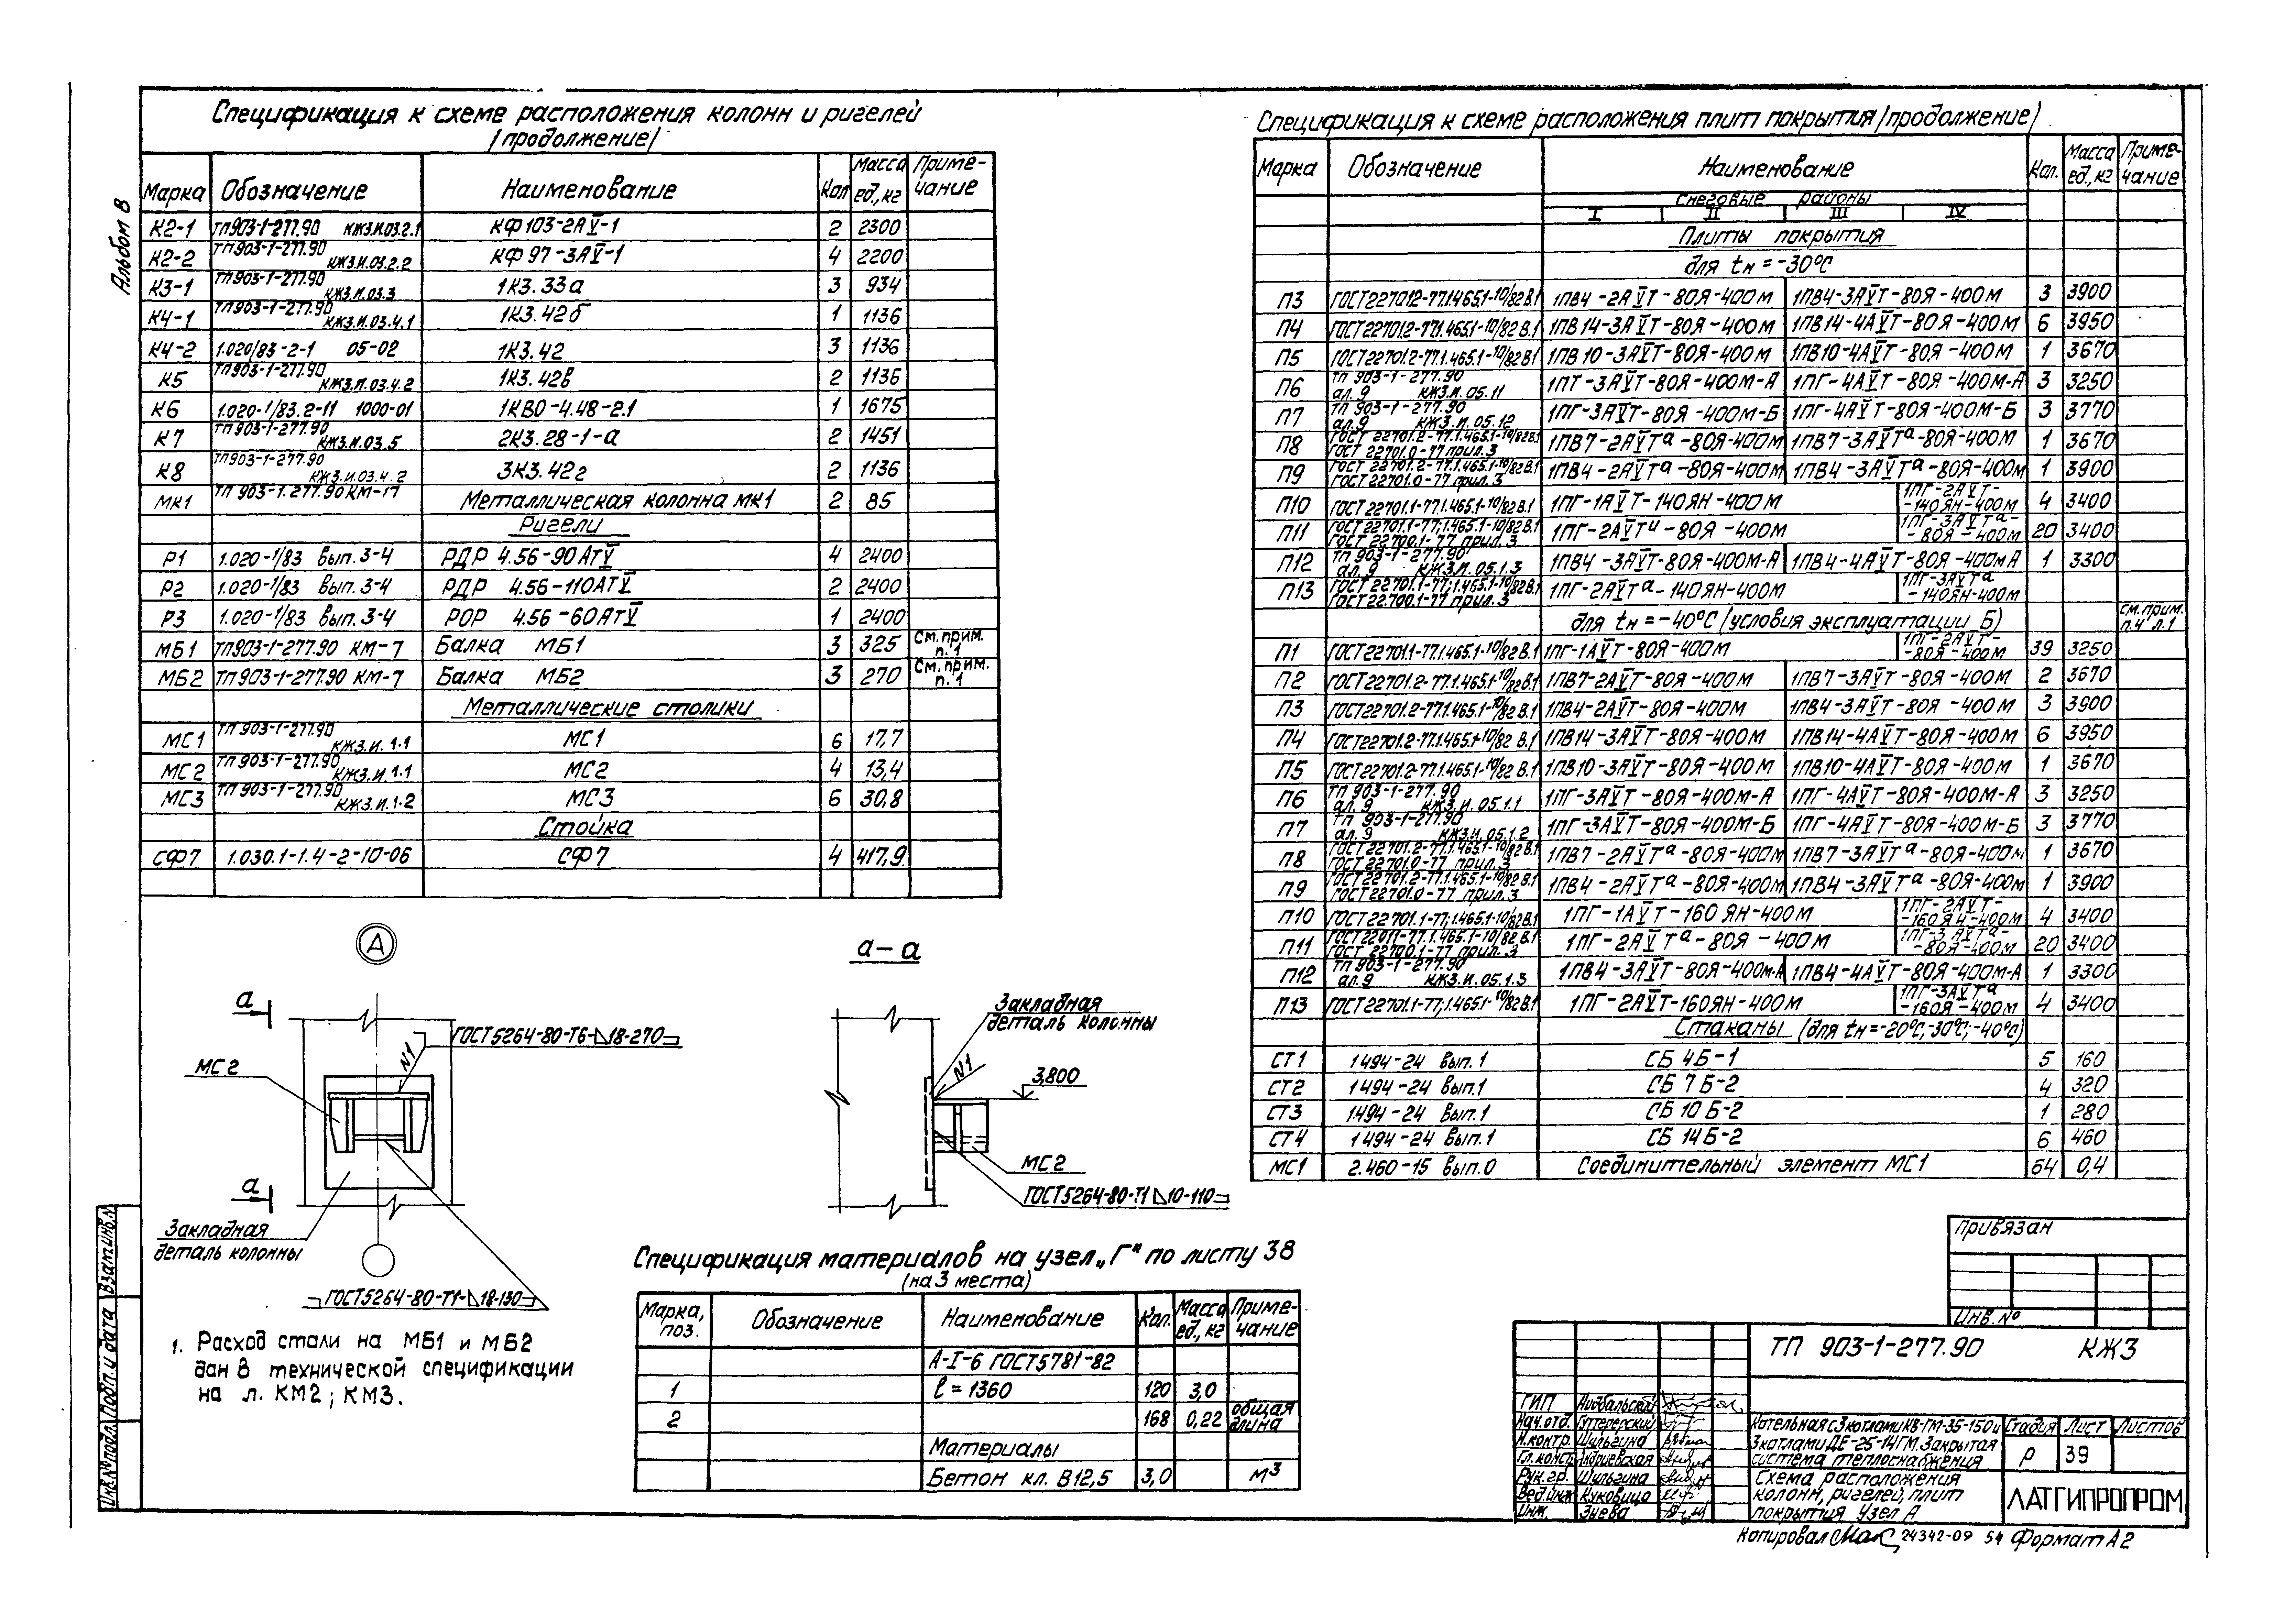 Альбом 8
Спецификация к схеме расположения колонн и ригелей
/продолжение/
Марка Обозначение Наименование Кол Масса ед., кг Приме-чание
К2-1 ТП903-1-277.90 КЖ3.И.03.2.1 КФ103-2АV-1 2 2300
К2-2 ТП903-1-277.90 КЖ3.И.03.2.2 КФ97-3АV-1 4 2200
К3-1 ТП903-1-277.90 КЖ3.И.03.3 1К3.33а 3 934
К4-1 ТП903-1-277.90 КЖ3.И.03.4.1 1К3.42б 1 1136
К4-2 1.020/83-2-1 05-02 1К3.42 3 1136
К5 ТП903-1-277.90 КЖ3.И.03.4.2 1К3.42в 2 1136
К6 1.020-1/83.2-11 1000-01 1КВО-4.48-2.1 1 1675
К7 ТП903-1-277.90 КЖ3.И.03.5 2К3.28-1-а 2 1451
К8 ТП903-1-277.90 КЖ3.И.03.4.2 3К3.42г 2 1136
МК1 ТП 903-1.277.90 КМ-17 Металлическая колонна МК1 2 85
Ригели
Р1 1.020-1/83 вып. 3-4 РДР 4.56-90АТV 4 2400
Р2 1.020-1/83 вып. 3-4 РДР 4.56-110АТV 2 2400
Р3 1.020-1/83 вып. 3-4 РОР 4.56-60АТV 1 2400
МБ1 ТП903-1-277.90 КМ-7 Балка МБ1 3 325 См. прим. п.1
МБ2 ТП903-1-277.90 КМ-7 Балка МБ2 3 270 См. прим. п.1
Металлические столики
МС1 ТП 903-1-277.90 КЖ3.И.1.1 МС1 6 17,7
МС2 ТП 903-1-277.90 КЖ3.И.1.1 МС2 4 13,4
МС3 ТП 903-1-277.90 КЖ3.И.1.2 МС3 6 30,8
Стойка
СФ7 1.030.1-1.4-2-10-06 СФ7 4 417,9
Спецификация к схеме расположения плит покрытия/продолжение/
Марка Обозначение Наименование Кол. Масса ед., кг Приме-чание
Снеговые районы
I II III IV
Плиты покрытия
для tн = -30°С
П3 ГОСТ22701.2-77.1.465.1-10/82 В.1 1ПВ4-2АVТ-80Я-400м 1ПВ4-3АVТ-80Я-400м 3 3900
П4 ГОСТ22701.2-77.1.465.1-10/82 В.1 1ПВ14-3АVТ-80Я-400м 1ПВ14-4АVТ-80Я-400м 6 3950
П5 ГОСТ22701.2-77.1.465.1-10/82 В.1 1ПВ10-3АVТ-80Я-400м 1ПВ10-4АVТ-80Я-400м 1 3670
П6 ТП 903-1-277.90 ал.9 КЖ3.И.05.11 1ПТ-3АVТ-80Я-400м-А 1ПГ-4АVТ-80Я-400м-А 3 3250
П7 ТП 903-1-277.90 ал.9 КЖ3.И.05.12 1ПГ-3АVТ-80Я-400м-Б 1ПГ-4АVТ-80Я-400м-Б 3 3770
П8 ГОСТ 22701.2-77.1.465.1-10/82 В.1 ГОСТ 22701.0-77 прил.3 1ПВ7-2АVТа-80Я-400м 1ПВ7-3АVТа-80Я-400м 1 3670
П9 ГОСТ 22701.2-77.1.465.1-10/82 В.1 ГОСТ 22701.0-77 прил.3 1ПВ4-2АVТа-80Я-400м 1ПВ4-3АVТа-80Я-400м 1 3900
П10 ГОСТ22701.1-77.1.465.1-10/82 В.1 1ПГ-1АVТ-140ЯН-400м 1ПГ-2АVТ--140ЯН-400м 4 3400
П11 ГОСТ22701.1-77;1.465.1-10/82 В.1 ГОСТ 22700.1-77 прил.3 1ПГ-2АVТи-80Я-400м 1ПГ-3АVТа--80Я-400м 20 3400
П12 ТП 903-1-277.90 ал.9 КЖ3.И.05.1.3 1ПВ4-3АVТ-80Я-400м-А 1ПВ4-4АVТ-80Я-400мА 1 3300
П13 ГОСТ22701.1-77;1.465.1-10/82 В.1 ГОСТ 22.700.1-77 прил.3 1ПГ-2АVТа-140ЯН-400м 1ПГ-3АVТа-140ЯН-400м
для tн = -40°С (условия эксплуатации Б) см. прим. п.4 л.1
П1 ГОСТ22701.1-77.1.465.1-10/82 В.1 1ПГ-1АVТ-80Я-400м 1ПГ-2АVТ--80Я-400м 39 3250
П2 ГОСТ22701.2-77.1.465.1-10/82 В.1 1ПВ7-2АVТ-80Я-400м 1ПВ7-3АVТ-80Я-400м 2 3670
П3 ГОСТ22701.2-77.1.465.1-10/82 В.1 1ПВ4-2АVТ-80Я-400м 1ПВ4-3АVТ-80Я-400м 3 3900
П4 ГОСТ22701.2-77.1.465.1-10/82 В.1 1ПВ14-3АVТ-80Я-400м 1ПВ14-4АVТ-80Я-400м 6 3950
П5 ГОСТ22701.2-77.1.465.1-10/82 В.1 1ПВ10-3АVТ-80Я-400м 1ПВ10-4АVТ-80Я-400м 1 3670
П6 ТП 903-1-277.90 ал.9 КЖ3.И.05.1.1 1ПГ-3АVТ-80Я-400м-А 1ПГ-4АVТ-80Я-400м-А 3 3250
П7 ТП 903-1-277.90 ал.9 КЖ3.И.05.1.2 1ПГ-3АVТ-80Я-400м-Б 1ПГ-4АVТ-80Я-400м-Б 3 3770
П8 ГОСТ 22701.2-77.1.465.1-10/82 В.1 ГОСТ22701.0-77 прил.3 1ПВ7-2АVТа-80Я-400м 1ПВ7-3АVТа-80Я-400м 1 3670
П9 ГОСТ 22701.2-77.1.465.1-10/82 В.1 ГОСТ22701.0-77 прил.3 1ПВ4-2АVТа-80Я-400м 1ПВ4-3АVТа-80Я-400м 1 3900
П10 ГОСТ22701.1-77;1.465.1-10/82 В.1 1ПГ-1АVТ-160ЯН-400м 1ПГ-2АVТ--160ЯН-400м 4 3400
П11 ГОСТ 22011-77.1.465.1-10/82 В.1 ГОСТ 22700.1-77 прил.3 1ПГ-2АVТа-80Я-400м 1ПГ-3АVТа--80Я-400м 20 3400
П12 ТП 903-1-277.90 ал.9 КЖ3.И.05.1.3 1ПВ4-3АVТ-80Я-400м-А 1ПВ4-4АVТ-80Я-400м-А 1 3300
П13 ГОСТ22701.1-77;1.465.1-10/82 В.1 1ПГ-2АVТ-160ЯН-400м 1ПГ-3АVТа-160Я-400м 4 3400
Стаканы (для tн=-20°С,-30°С;-40°С)
СТ1 1494-24 вып. 1 СБ 4Б-1 5 160
СТ2 1494-24 вып. 1 СБ 7Б-2 4 320
СТ3 1494-24 вып. 1 СБ 10Б-2 1 280
СТ4 1494-24 вып. 1 СБ 14Б-2 6 460
МС1 2.460-15 вып.0 Соединительный элемент МС1 64 0,4
А
а
а
МС2
N1
ГОСТ5264-80-Т6-18-270
Закладная
деталь колонны
ГОСТ5264-80-Т1-18-130
а-а
Закладная
деталь колонны
N1
3,800
МС2
ГОСТ5264-80-Т1 10-110
1. Расход стали на МБ1 и МБ2
дан в технической спецификации
на л. КМ2; КМ3.
Спецификация материалов на узел „Г" по листу 38
(на 3 места)
Марка, поз. Обозначение Наименование Кол. Масса ед., кг Приме-чание
А-I-6 ГОСТ5781-82
1 ℓ=1360 120 3,0
2 168 0,22 общая длина
Материалы
Бетон кл. В12,5 3,0 м3
Привязан
Инв. №
ТП 903-1-277.90 КЖ3
ГИП
Нач. отд.
Н.контр. Шульгина
Гл. констр.
Рук. гр. Шульгина
Вед. инж. Куковицо
Инж. Зуева
Котельная с 3 котлами КВ-ГМ-35-150 и
3 котлами ДЕ-25-14ГМ. Закрытая
система теплоснабжения
Стадия Лист Листов
Р 39
Схема расположения
колонн, ригелей, плит
покрытия Узел А
ЛАТГИПРОПРОМ
Копировал 24342-09 54 Формат А2
Инв.№подл. Подп. и дата Взам инв.N